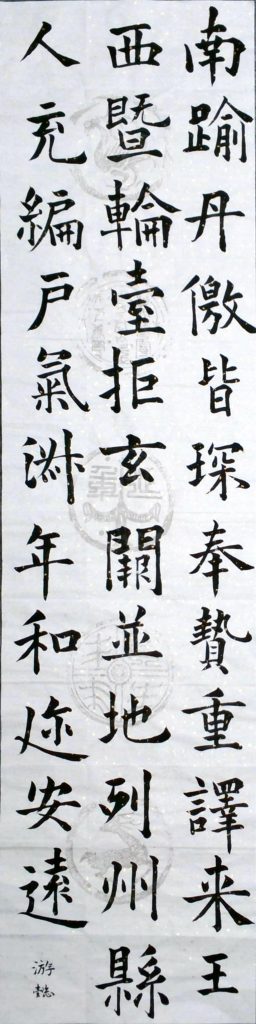 南踰丹儌皆琛奉贄重譯来王
西暨輪臺拒玄闕並地列州縣
人充編戶氣淑年和迩安遠
游懿